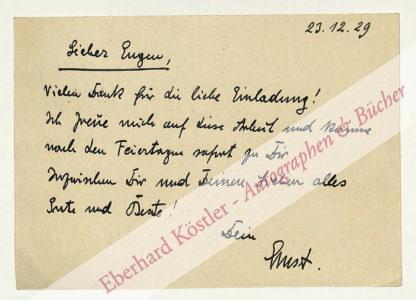 23.12.29
Lieber Eugen,
Vielen Dank für die liebe Einladung!
Ich freue mich auf diese Arbeit und komme
nach den Feiertagen sofort zu Dir
Inzwischen Dir und Deinen Lieben alles
Gute und Beste!
Dein
Ernst.
Eberhard Köstler - Autographen & Bücher